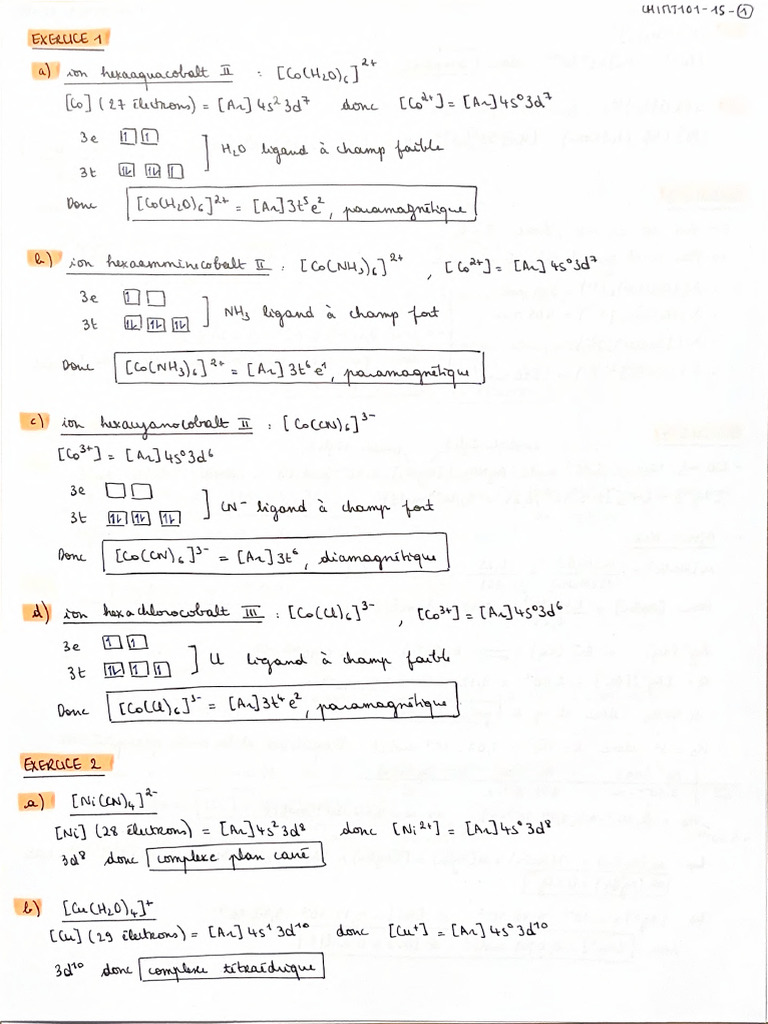 CHIM101-15-①
EXERCICE 1
a) ion hexaaquacobalt II : [Co(H2O)6]²⁺
[Co] (27 électrons) = [Ar] 4s² 3d⁷ donc [Co²⁺] = [Ar] 4s⁰ 3d⁷
3e [1] [1]
3t [1↓] [1↓] [1] ] H2O ligand à champ faible
Donc [Co(H2O)6]²⁺ = [Ar] 3t⁵ e², paramagnétique
b) ion hexaamminecobalt II : [Co(NH3)6]²⁺ , [Co²⁺] = [Ar] 4s⁰ 3d⁷
3e [1] [ ]
3t [1↓] [1↓] [1↓] ] NH3 ligand à champ fort
Donc [Co(NH3)6]²⁺ = [Ar] 3t⁶ e¹, paramagnétique
c) ion hexacyanocobalt II : [Co(CN)6]³⁻
[Co³⁺] = [Ar] 4s⁰ 3d⁶
3e [ ] [ ]
3t [1↓] [1↓] [1↓] ] CN⁻ ligand à champ fort
Donc [Co(CN)6]³⁻ = [Ar] 3t⁶, diamagnétique
d) ion hexachlorocobalt III : [Co(Cl)6]³⁻ , [Co³⁺] = [Ar] 4s⁰ 3d⁶
3e [1] [1]
3t [1↓] [1] [1] ] Cl ligand à champ faible
Donc [Co(Cl)6]³⁻ = [Ar] 3t⁴ e², paramagnétique
EXERCICE 2
a) [Ni(CN)4]²⁻
[Ni] (28 électrons) = [Ar] 4s² 3d⁸ donc [Ni²⁺] = [Ar] 4s⁰ 3d⁸
3d⁸ donc complexe plan carré
b) [Cu(H2O)4]⁺
[Cu] (29 électrons) = [Ar] 4s¹ 3d¹⁰ donc [Cu⁺] = [Ar] 4s⁰ 3d¹⁰
3d¹⁰ donc complexe tétraédrique